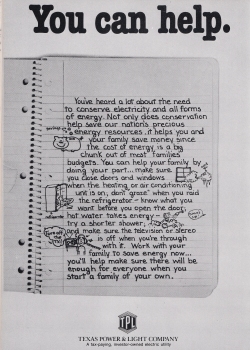 You can help.
You've heard a lot about the need
to conserve electricity and all forms
of energy. Not only does conservation
help save our nation's precious
energy resources, it helps you and
your family save money since
the cost of energy is a big
chunk out of most families'
budgets. You can help your family by
doing your part... make sure
you close doors and windows
when the heating or air conditioning
unit is on, don't "graze" when you raid
the refrigerator - know what you
want before you open the door,
hot water takes energy -
try a shorter shower,
and make sure the television or stereo
is off when you're through
with it. Work with your
family to save energy now...
you'll help make sure there will be
enough for everyone when you
start a family of your own.
TPL
TEXAS POWER & LIGHT COMPANY
A tax-paying, investor-owned electric utility